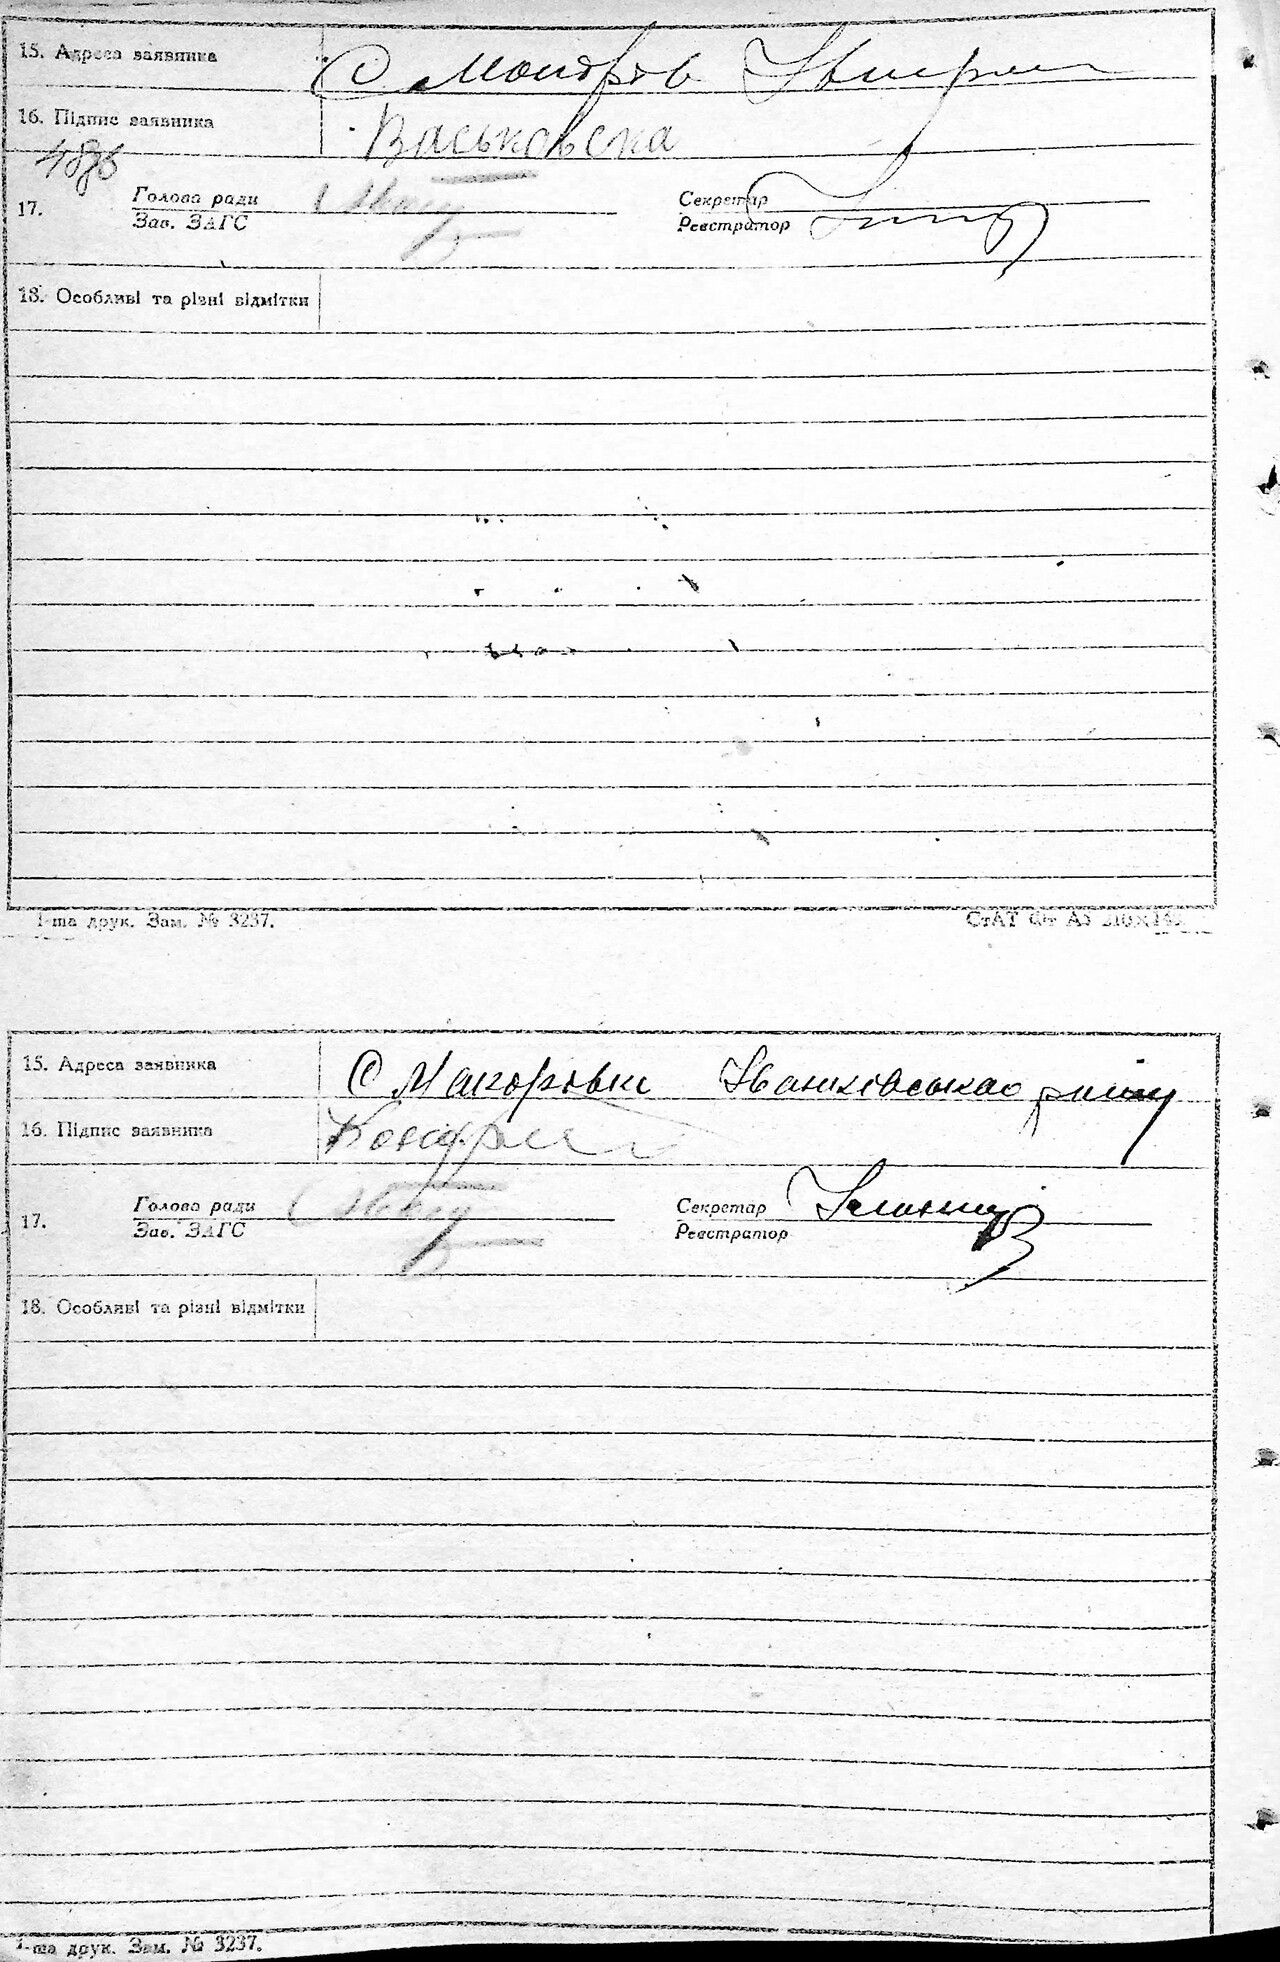 15. Адреса заявника С
16. Підпис заявника Васьковська
17. Голова ради Секретар
Зав. ЗАГС Реєстратор
18. Особливі та різні відмітки
1-ша друк. Зам. № 3237.
15. Адреса заявника С Макоровки Іванківського району
16. Підпис заявника
17. Голова ради Секретар
Зав. ЗАГС Реєстратор
18. Особливі та різні відмітки
1-ша друк. Зам. № 3237.